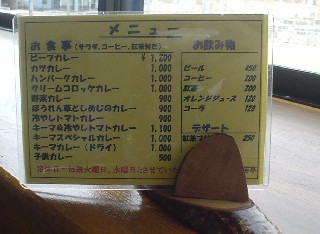 メニュー
お食事 (サラダ、コーヒー、紅茶付き)
ビーフカレー ¥1,200
カツカレー 1,000
ハンバーグカレー 1,000
クリームコロッケカレー 1,000
野菜カレー 900
ほうれん草としめじのカレー 900
冷やしトマトカレー 900
キーマ&冷やしトマトカレー 1,100
キーマスペシャルカレー 1,000
キーマカレー (ドライ) 1,000
子供カレー 500
お飲み物
ビール 450
コーヒー 200
紅茶 200
オレンジジュース 120
コーラ 120
デザート
紅茶 250
毎週火曜日、水曜日とさせていた